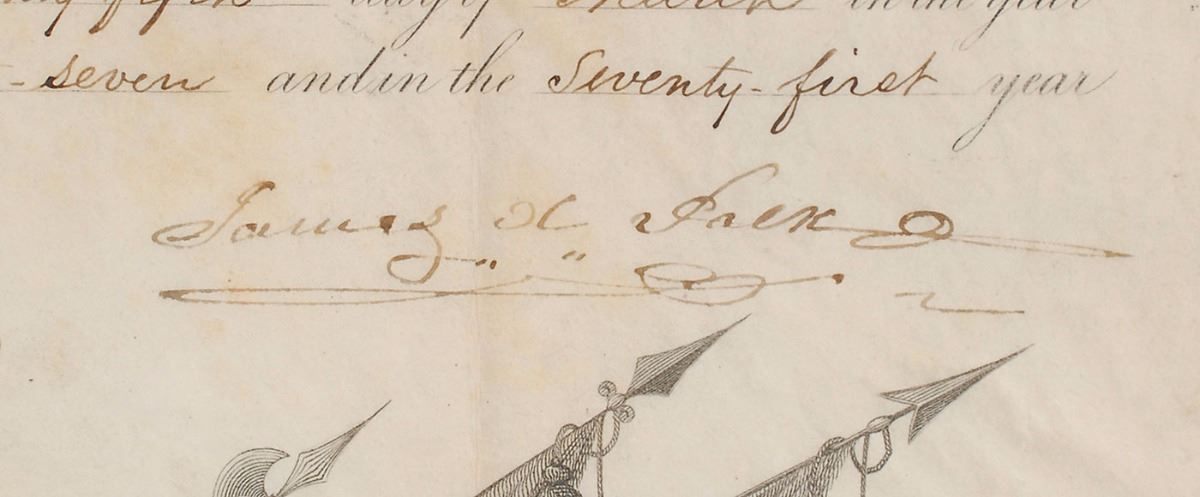 fifth day of March in the year
-seven and in the Seventy-first year
James K Polk